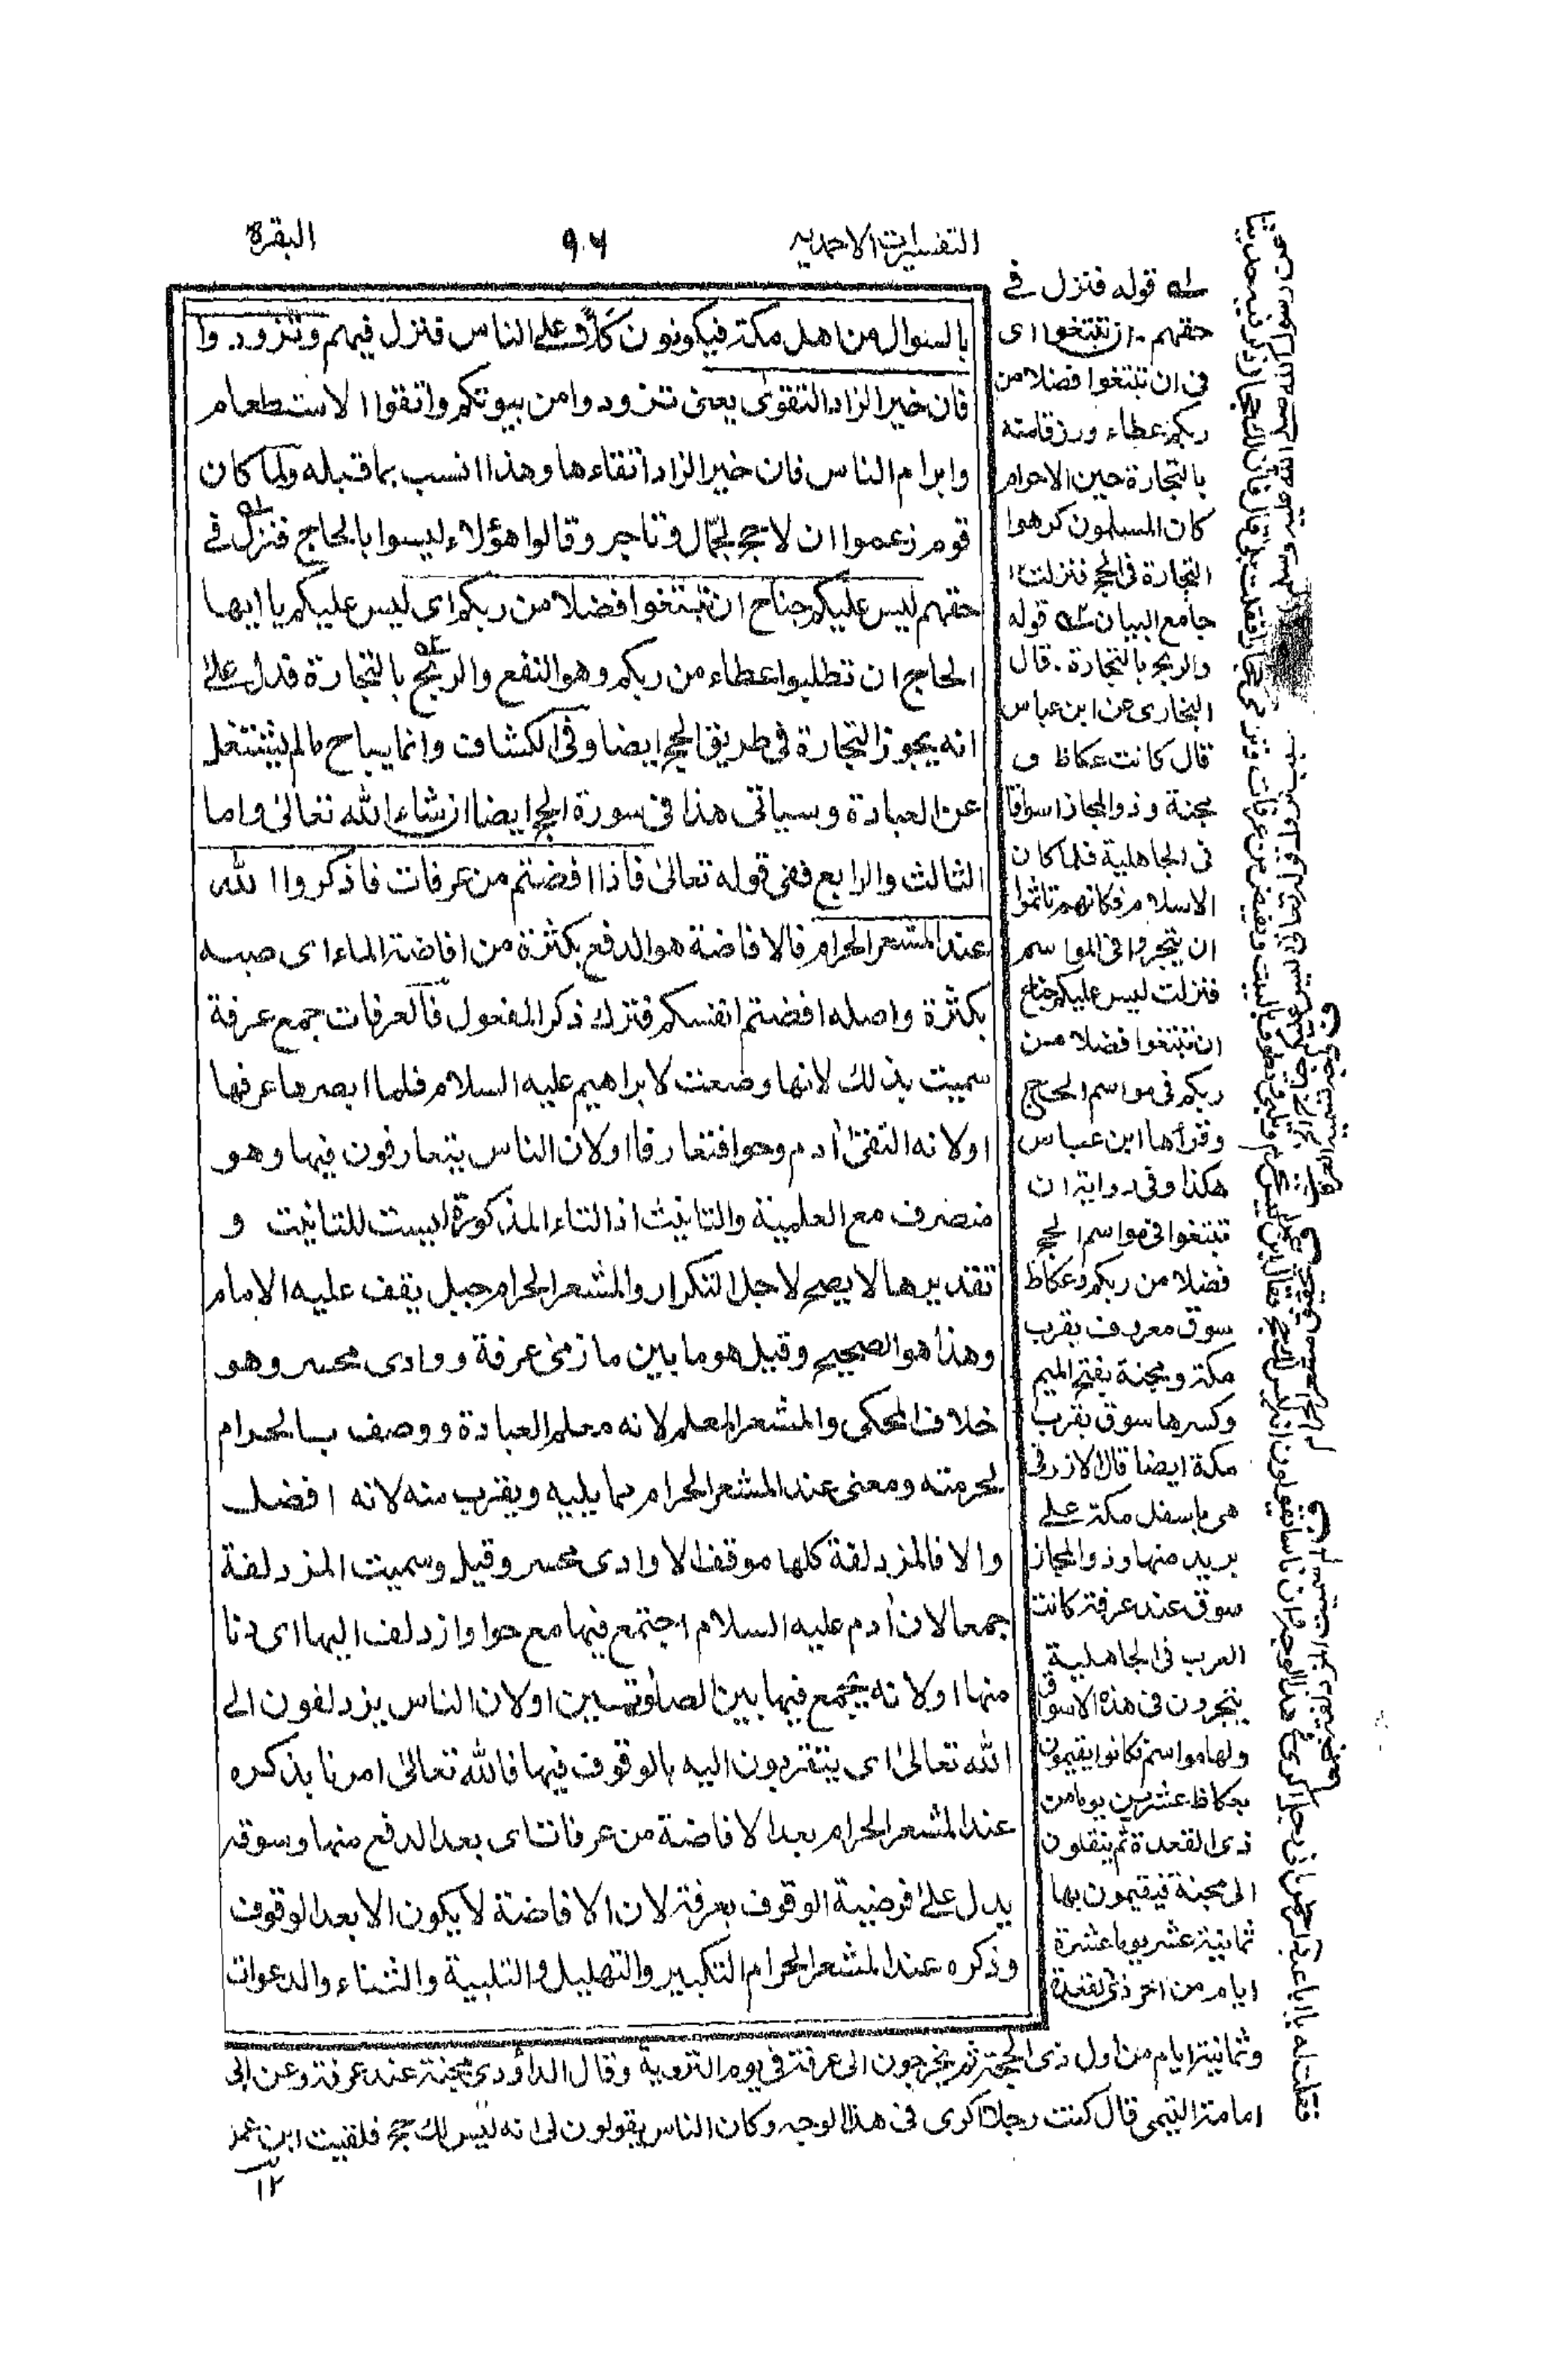 التفسيرات الاحمديه
٩٠٦
البقرة
بالسوال من اهل مكة فيكونون كَلًّا على الناس فنزل فيهم وتزودوا
فان خير الزاد التقوى يعنى تزودوا من بيوتكم واتقوا الاستطعام
وابرام الناس فان خير الزاد اتقاءها وهذا انسب بما قبله ولما كان
قوم زعموا ان لا حج لجمّال وتاجر وقالوا هؤلاء ليسوا بالحاج فنزل فى
حقهم ليس عليكم جناح ان تبتغوا فضلا من ربكم اى ليس عليكم يا ايها
الحاج ان تطلبوا عطاء من ربكم وهو النفع والربح بالتجارة فدل على
انه يجوز التجارة فى طريق الحج ايضا وفى الكشاف وانما يباح مالم يشتغل
عن العبادة وسياتى هذا فى سورة الحج ايضا ان شاء الله تعالى واما
الثالث والرابع ففى قوله تعالى فاذا افضتم من عرفات فاذكروا الله
عند المشعر الحرام فالافاضة هو الدفع بكثرة من افاضة الماء اى صبه
بكثرة واصله افضتم انفسكم فترك ذكر المفعول فالعرفات جمع عرفة
سميت بذلك لانها وضعت لابراهيم عليه السلام فلما ابصرها عرفها
اولانه التقى أدم وحوا فتعارفا اولان الناس يتعارفون فيها وهو
منصرف مع العلمية والتانيث اذ التاء المذكورة ليست للتانيث و
تقديرها لا يصح لاجل التكرار والمشعر الحرام جبل يقف عليه الامام
وهذا هو الصحيح وقيل هو ما بين مازمى عرفة ووادى محسر وهو
خلاف المحكى والمشعر المعلم لانه معلم العبادة ووصف بالحرام
لحرمته ومعنى عند المشعر الحرام مما يليه ويقرب منه لانه افضل
والا فالمزدلفة كلها موقف الا وادى محسر وقيل وسميت المزدلفة
جمعا لان أدم عليه السلام اجتمع فيها مع حوا وازدلف اليها اى دنا
منها اولانه يجمع فيها بين الصلوتين اولان الناس يزدلفون الى
الله تعالى اى يتقربون اليه بالوقوف فيها فالله تعالى امرنا بذكره
عند المشعر الحرام بعد الافاضة من عرفات اى بعد الدفع منها وسوقه
يدل على فرضية الوقوف بعرفة لان الافاضة لا يكون الا بعد الوقوف
وذكره عند المشعر الحرام التكبير والتهليل والتلبية والثناء والدعوات
له قوله فنزل فى
حقهم ان تبتغوا اى
فى ان تبتغوا فضلا من
ربكم عطاء ورزقا منه
بالتجارة حين الاحرام
كان المسلمون كرهوا
التجارة فى الحج فنزلت
جامع البيان قوله
والربح بالتجارة. قال
البخارى عن ابن عباس
قال كانت عكاظ و
مجنة وذو المجاز اسواقا
فى الجاهلية فلما كان
الاسلام فكانهم تاثموا
ان يتجروا فى المواسم
فنزلت ليس عليكم جناح
ان تبتغوا فضلا من
ربكم فى مواسم الحج
وقرأها ابن عباس
هكذا وفى رواية ان
تبتغوا فى مواسم الحج
فضلا من ربكم وعكاظ
سوق معروف بقرب
مكة ومجنة بفتح الميم
وكسرها سوق بقرب
مكة ايضا قال الازرقى
هى باسفل مكة على
بريد منها وذو المجاز
سوق عند عرفة كانت
العرب فى الجاهلية
يتجرون فى هذه الاسواق
ولها مواسم فكانوا يقيمون
بعكاظ عشرين يوما من
ذى القعدة ثم ينتقلون
الى مجنة فيقيمون بها
ثمانية عشر يوما عشرة
ايام من اخر ذى القعدة
وثمانية ايام من اول ذى الحجة ثم يخرجون الى عرفة فى يوم التروية وقال الداؤدى مجنة عند عرفة وعن ابى
امامة التيمى قال كنت رجلا اكرى فى هذا الوجه وكان الناس يقولون لى انه ليس لك حج فلقيت ابن عمر
١٢